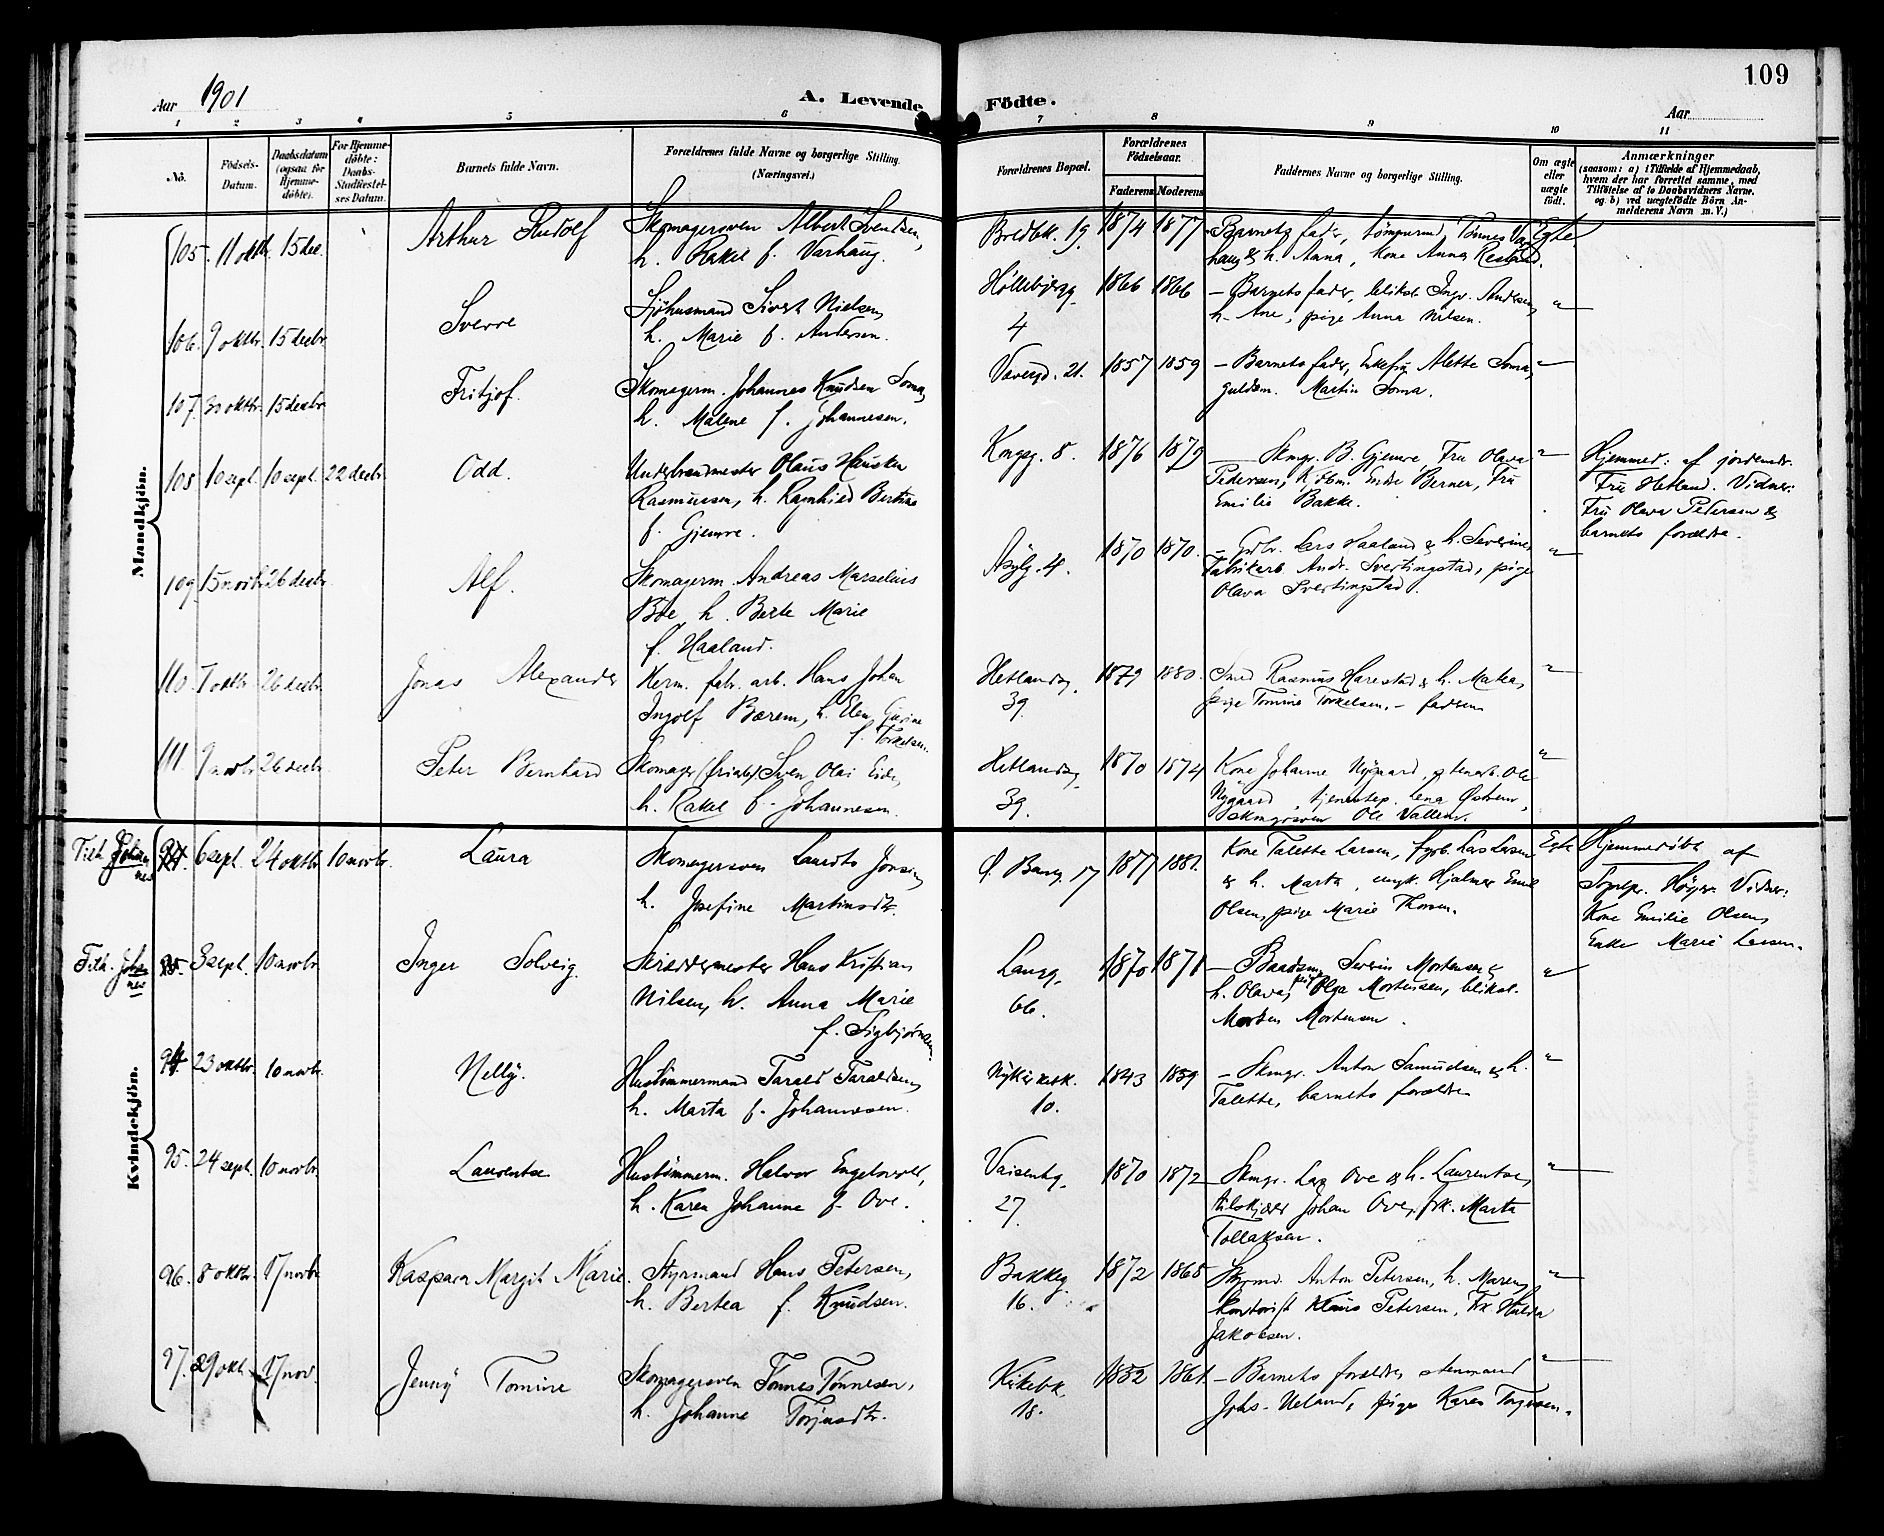 109
Aar 1901
A. Levende Födte.
Aar
1 2 3 4 5 6 7 8 9 10 11
No.
Födsels-Datum.
Daabsdatum (ogsaa for Hjemme-döbte).
For Hjemme-döbte: Daabs-Stadfæstel-ses Datum.
Barnets fulde Navn.
Forældrenes fulde Navne og borgerlige Stilling.
(Næringsvei.)
Forældrenes Bopæl.
Forældrenes Födselsaar.
Faderens Moderens
Faddernes Navne og borgerlige Stilling.
Om ægte eller uægte födt.
Anmærkninger
(saasom: a) i Tilfælde af Hjemmedaab, hvem der har forrettet samme, med Tilföielse af to Daabsvidners Navne, og b) ved uægtefödte Börn An-melderens Navn m. V.)
Mandkjön.
105. 11 oktb. 15 dec. Arthur Rudolf Skomagersven Albert Svendsen, Bredbk. 19. 1874 1877 Barnets fader, tömmermd. Tönnes Var- Egte
h. Rakel f. Varhaug. haug & h. Anna, Kone Anna
106. 9 oktbr. 15 decbr. Sverre Sjöhusmand Sivert Nielsen, Höllebjergg. 1866 1866 – Barnets fader, bliksl. Ingv. Andersen, "
h. Marie f. Andersen. 4 h. Ane, pige Anna Nilsen.
107. 30 oktbr. 15 decbr. Fritjof. Skomagerm. Johannes Knudsen Soma, Væverg. 21. 1857 1859 – Barnets fader, Enkefru Alette Soma, "
h. Malene f. Johannesen. guldsm. Martin Soma.
108 10 sept. 10 sept. 22 decbr. Odd. Underbrandmester Olaus Hausken Kongsg. 8. 1876 1879 Skmgr. B. Gjemre, Fru Olava " Hjemmed: af jordemdr.
Rasmussen, h. Ragnhild Berthine Pedersen, Kjöbm. Endre Berner, Fru Fru Hetland. Vidner:
f. Gjemre. Emilie Bakke. Fru Olava Pedersen &
barnets forældre.
109. 15 novbr. 26 decbr. Alf. Skomagerm. Andreas Marselius Asylg. 4. 1870 1870. – Grdbr. Lars Haaland & h. Severine, "
Böe, h. Berte Marie Fabrikarb. Andr. Svertingstad, pige
f. Haaland. Olava Svertingstad.
110. 7 oktbr. 26 decbr. Jonas Alexander Herm. fabr. arb. Hans Johan Hetlandsg. 1879 1880. Smed Rasmus Harestad & h. Malea, "
Ingolf Bærem, h. Elen Gurine 39. pige Tomine Torkelsen, – faderen
f. Torkelsen.
111. 9 novbr. 26 decbr. Peter Bernhard Skomager (friab.) Sven Olai Eide, Hetlandsg. 1870 1874 Kone Johanne Nygaard, Ole "
h. Rakel f. Johannesen. 39. Nygaard, tjenestep. Lena
Skmgrsven Ole Vallem.
Kvindekjön.
Tilh. Johannes 6 sept. 24 oktbr. 10 novbr. Laura Skomagersven Laurits Jonsen, Ö. Bang. 17 1877 1881. Kone Talette Larsen, fyrb. Lars Larsen Egte Hjemmedöbt af
h. Josefine Martinsdtr. & h. Marta, ungk. Hjalmar Emil Sognepr. Höyer. Vidner:
Olsen, pige Marie Thorsen. Kone Emilie Olsen,
Enke Marie Larsen.
Tilh. Johannes 3 sept. 10 novbr. Inger Solveig. Skræddermester Hans Kristian Langg. 1870 1871 – Baadsm. Severin Mortensen & "
Nilsen, h. Anna Marie 66. h. Olava, pige Olga Mortensen, bliksl.
f. Sigbjörnsen. Morten Mortensen.
94. 23 oktbr. 10 novbr. Nelly. Hustömmermand Tarald Taraldsen, Nykirkebk. 1843 1859 – Skmgr. Anton Samuelsen & h. "
h. Marta f. Johannesen. 10. Talette, barnets forældre
95. 24 sept. 10 novbr. Laurentse Hustömmerm. Halvor Engelsvold, Vaisenhg. 1870 1872 – Skmgr. Lars Ove & h. Laurentse, "
h. Karen Johanne f. Ove. 27. tilskjærer Johan Ove, frk. Marta
Tollaksen.
96. 8 oktbr. 17 novbr. Kaspara Margit Marie. Styrmand Hans Petersen, Bakkeg. 1872 1868 Styrmd. Anton Petersen, h. Maren, "
h. Bertea f. Knudsen. 16. Kontorist Klaus Petersen, Frk. Hulda
Jakobsen.
97. 29 okt. 17 nov. Jenny Tomine Skomagersven Tönnes Tönnesen, Kirkebk. 1852 1861. – Barnets forældre, stenmand "
h. Johanne Torjusdtr. 18. Johs. Ueland, pige Karen Torjusen.